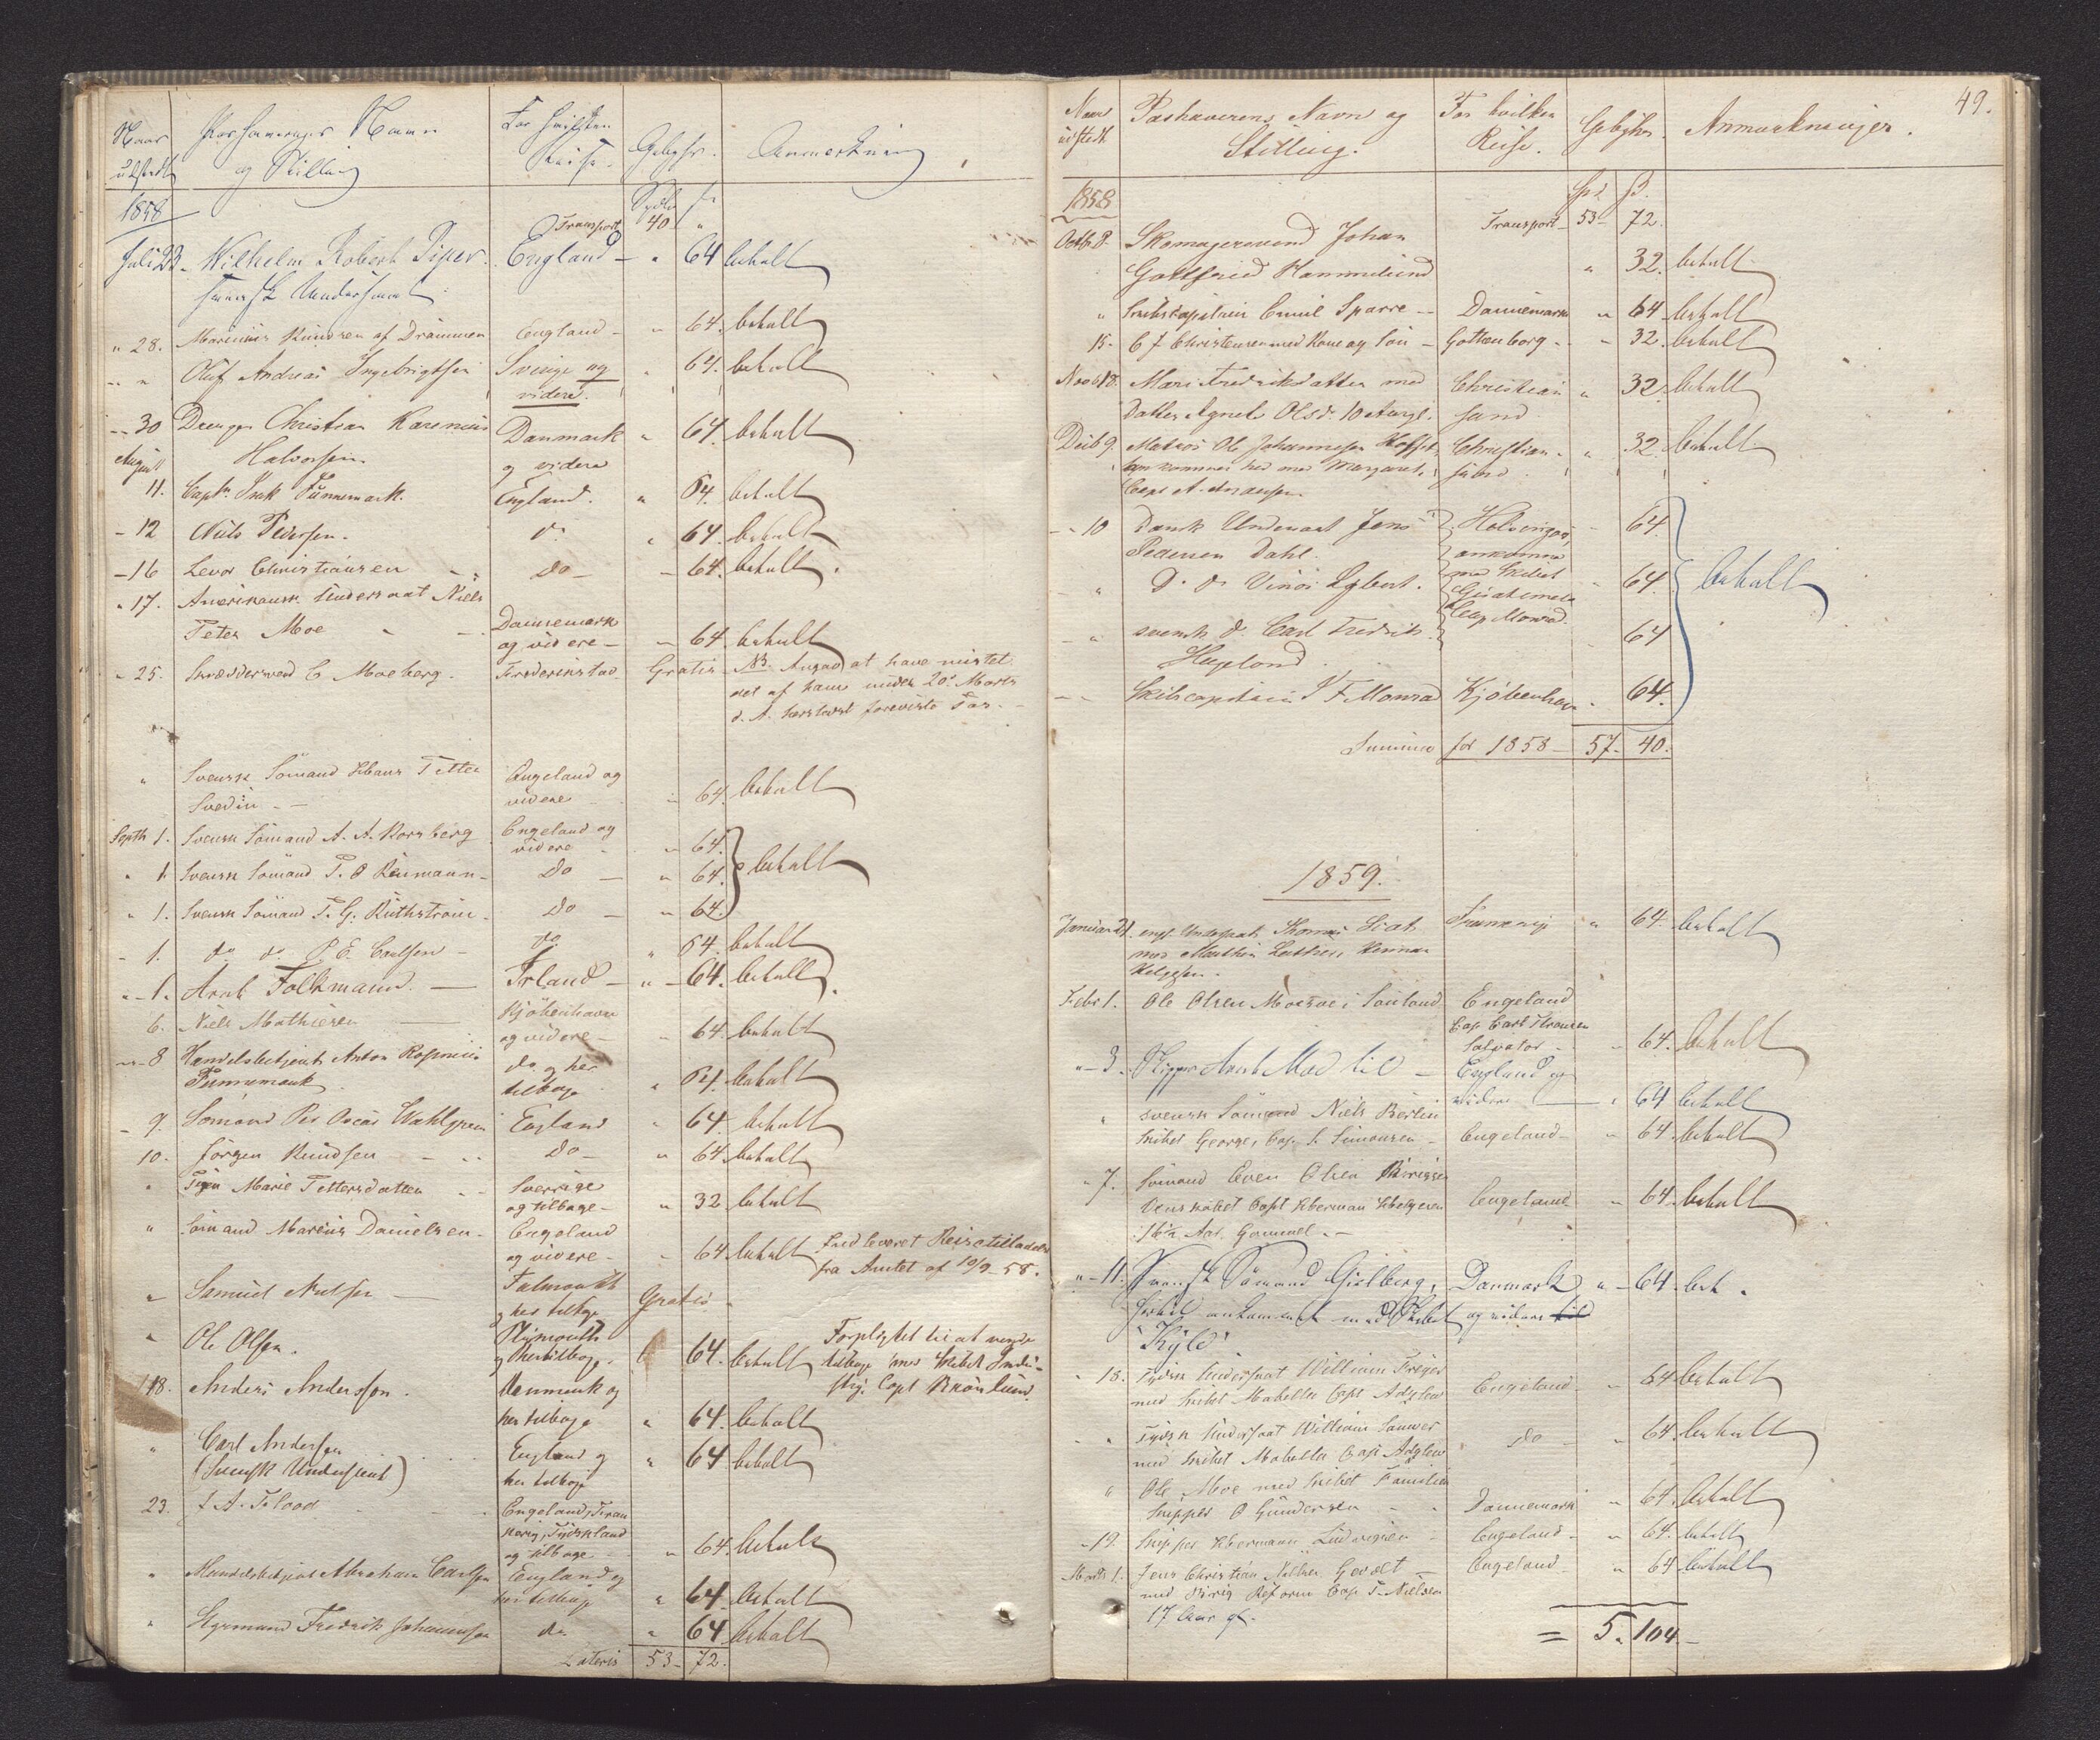 Naar udstedt
Pashaverens Navn og Stilling
For hvilken Reise.
Gebyhr.
Anmerkning
1858
Spdlr ß
Transport 40 "
Juli 23. Wilhelm Robert Piper England " 64 betalt
svensk Undersaat
" 28. Marinius Knudsen af Drammen England " 64. betalt
" " Oluf Andreas Ingebrigtsen Sverige og " 64. betalt
videre.
" 30 Drengen Christian Karenius Danmark " 64. betalt
Halvorsen og videre
August
11. Capt. Isak Tünnemark. England. " 64. betalt
- 12 Niels Pedersen. do " 64. betalt
- 16 Levor Christiansen do - 64. betalt.
" 17. Amerikansk Undersaat Niels
Peter Moe Dannemark
og videre - " 64. betalt
" 25. Skrædersvend C Moeberg. Frederikstad Gratis NB. Angav at have mistet
det af ham under 20de Marts
d. A. foreviste Pas.
" Svensk Sömand Hans Petter Engeland og
Svedin - - videre " 64. betalt
Septb 1. Svensk Sömand A. A. Korsberg Engeland og
videre " 64.
" 1. Svensk Sömand P. O Reumann - do " 64. betalt
" 1. Svensk Sömand F. G. Ruthström do " 64.
- 1. do do P. E. Carlsen - do " 64. betalt
" - 1. Arnt Folkmand. Irland - " - 64. betalt.
6. Niels Mathiesen Kjöbenhavn
og videre - " 64. betalt
" - 8 Handelsbetjent Anton Rasmus do og her
Tünnemark tilbage " 64. betalt
- 9. Sömand Per Oscar Wahlgren England " 64. betalt
10. Jörgen Knudsen do " 64. betalt
" Pigen Marie Pettersdatter Sverrige
og tilbage - " 32 betalt
" Sömand Marius Danielsen - Engeland
og videre - " 64. betalt Indleveret Reisetilladelse
fra Amtet af 10/9-58.
" Samuel Falmouth
og her tilbage Gratis
" Ole Olsen. Plymouth
og her tilbage. 64. betalt Forpligtet til at vende
tilbage med Skibet
Capt Brönlund
18. Anders Andersson. Danmark og
her tilbage " 64. betalt
" Carl Andersen England og " 64 betalt
(Svensk Undersaat) her tilbage
23. J. A. Flood Engeland, Frank
kerig, Tydskland
og tilbage " 64. betalt
" Handelsbetjent Abraham Carlsen England og
her tilbage " 64. betalt
" Styrmand Fredrik Johannesen do " 64 betalt
Lateris 53 - 72.
49.
Naar udstedt.
Pashaverens Navn og Stilling.
For hvilken Reise.
Gebyhr.
Anmærkninger.
1858
Spd. ß.
Transport 53 - 72.
Octb 8. Skomagersvend Johan
Gottfried Hammelund " 32. betalt
" Skibskapitain Emil Sparre - Dannemark " 64 betalt
15. C J Christensen med Kone og Sön - Gottenborg - " 32. betalt
Novb 18. Mari Fredriksdatter med Christian " 32. betalt
Datter Agnete Olsd. 10 Aar gl. sand
Decb 9. Matros Ole Johannesen Christian - " 32. betalt
kommen hid med Margaret, sund
Capt A. Andersen
- " 10 Dansk Undersaat Jens Helsingör, - 64.
Pedersen Dahl. ankommen
- " D. do Vinoi Egbert. med Skibet - 64. betalt
Cap Monrad.
- " svensk do Carl Fredrik 64
Hegelond
- - Skibscapitain F. Monrad Kjöbenhavn - 64.
Summa for 1858 - 57 - 40.
1859.
Januar 21. engl. Undersaat Thomas Frankrig " 64. betalt
med Martha Herman
Helgesen.
Febr 1. Ole Olsen Moesoe i Sauland Engeland
Cap. Carl Fransen
Salvator - " 64. betalt
" - 3. Skipper Arnt Mad til England og
videre " 64 betalt
" svensk Sömand Niels Berlin
Skibet George, Cap. S. Simonsen - Engeland - " 64. betalt
" 7. Sömand Even Olsen
Capt Herman Helgesen Engeland " 64. betalt
16½ Aar Gammel. -
" - 11. Svensk Sömand Gislberg, Danmark " - 64. bet.
ankommen med Skibet og videre til
"Kyld"
" 15. Tydsk Undersaat William Freyer
med Skibet Mabella Capt Engeland - " 64 betalt
- " Tydsk Undersaat William Sauwer
med Skibet Mabella Cap do " 64. betalt
" Ole Moe med Skibet Familien
Skipper O Gundersen Dannemark " 64. betalt
" 19. Skipper Hermann Ludvigsen - Engeland - " 64. betalt
Marts 1. Jens Christian Nielsen Gevelt - Engeland " 64 betalt
med Brig Reform Cap. T. Nielsen
17 Aar gl.
= 5 " 104 -